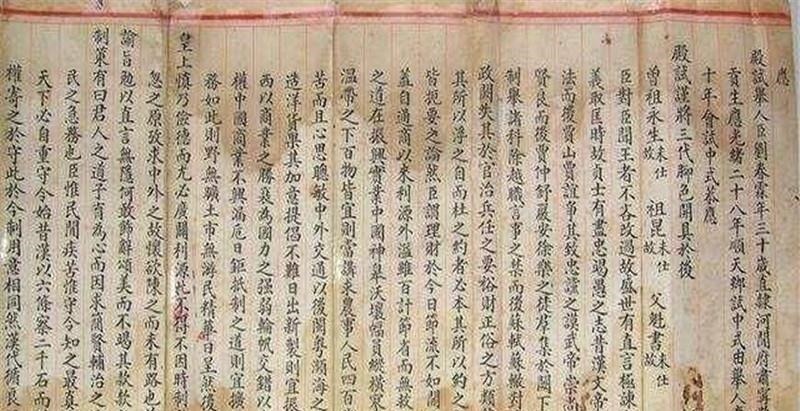 應
殿試舉人臣劉春霖年三十歲直隸河間府肅寧
貢生應光緒二十八年順天鄉試中式由舉人
十年會試中式恭應
殿試謹將三代腳色開具於後
曾祖永生未仕故 祖昆未仕故 父魁書未仕故
臣對臣聞王者不吝改過故盛世有直言極諫
義取匡時故貞士有盡忠竭愚之志昔漢文帝
法而後賈山賈誼爭其致忠讜之謨武帝崇尚
賢良而後賈仲舒嚴安徐樂之徒羣集於闕下
制舉諸科除越職言事之禁而後蘇軾蘇轍對
政闕失其於官治兵任之要裕財正俗之方類
其所以浮之自而杜之約者必本其所以約之
皆扼要之論然臣謂理財於今日節流不如開
蓋自通商以來利源外溢雖百計節省而無救
之道在振興實業中國神皋沃壤幅員縱橫寒
溫帶之下百物皆宜則當講求農事人民四百
苦而且心思聰敏中外交通以後閩粵瀕海之
造洋貨果其加意提倡不難日出新製則宜振
西以商業之勝衰為國力之强弱輪帆交錯以
權中國商業不興漏巵日鉅抵制之道則宜擴
務如此則野無曠土市無游民精華日呈然後
皇上慎乃儉德而尤必廣開利源此不得不因時制
怱之原孜求中外之故懷欲陳之而未有路也
諭旨勉以直言無隱何敢飾辭頌美而不竭其款款
制策有曰君人之道子育為心而因求簡賢輔治之
民之急務也臣惟民間疾苦惟守令知之最真
天下必自重守令始昔漢以六條察二千石而
權寄之於守此於今制用意相同然漢代循良